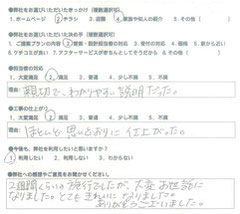 ●弊社をお選びいただいたきっかけ（複数選択可）
1. ホームページ ②チラシ 3. 店頭 ④家族や知人の紹介 5. その他（
●弊社をお選びいただいた決め手（複数選択可）
1. ご提案プランの内容 ②営業・設計担当者の対応 3. 受付の対応 4. 価格 5. 家から近い
6. クチコミが良い 7. アフターサービスが
●担当者の対応
1. 大変満足 ②満足 3. 普通 4. 少し不満 5. 不満
理由: 親切で、わかりやすい説明だった。
●工事の仕上がり
1. 大変満足 ②満足 3. 普通 4. 少し不満 5. 不満
理由: ほとんど思いどおりに仕上がった。
●今後も、弊社を利用したいと思いますか？
①利用したい 2. 利用しない 3. わからない
●弊社への感想やご意見をお聞かせください
2週間くらいの施行でしたが、大変お世話に
なりました。とてもきれいになりました。
ありがとうございました。